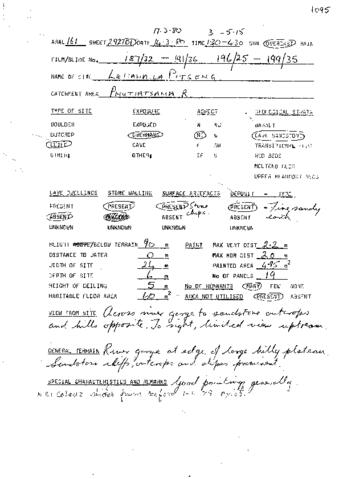 1095
17-3-80 3-5-15
ARAL 161 SHEET 2927DB DATE 16.3.80 TIME 1.30-6.30 SUN OVERCAST RAIN
FILM/SLIDE No. 187/32 - 191/36 196/25 - 199/35
NAME OF SITE PITSENG
CATCHMENT AREA PHUTIATSANA R.
TYPE OF SITE EXPOSURE ASPECT GEOLOGICAL STRATA
BOULDER EXPOSED N NW BASALT
OUTCROP OVERHANG N S CAVE SANDSTONE
CAVE E SW TRANSITIONAL BEDS
OTHER: OTHER: SE RED BEDS
MOLTENO BEDS
UPPER BEAUFORT BEDS
CAVE DWELLINGS STONE WALLING SURFACE ARTEFACTS DEPOSIT
PRESENT PRESENT PRESENT Stone PRESENT - Fine sandy
ABSENT ABSENT ABSENT chips. ABSENT earth
UNKNOWN UNKNOWN UNKNOWN
HEIGHT ABOVE/BELOW TERRAIN 90 m PAINT MAX VERT DIST 2.2 m
DISTANCE TO WATER 0 m MAX HOR DIST 20 m
WIDTH OF SITE 24 m PAINTED AREA m²
DEPTH OF SITE 6 m No OF PANELS 19
HEIGHT OF CEILING 5 m No OF REMNANTS MANY FEW NONE
HABITABLE FLOOR AREA 60 m² AREA NOT UTILISED PRESENT ABSENT
VIEW FROM SITE Across river gorge to sandstone outcrops
and hills opposite. To right, limited view upstream
GENERAL TERRAIN River gorge at edge of large hilly plateau
Sandstone cliffs, outcrops and slopes prominent.
SPECIAL CHARACTERISTICS AND REMARKS Good paintings generally.
NB: Colour slides from before